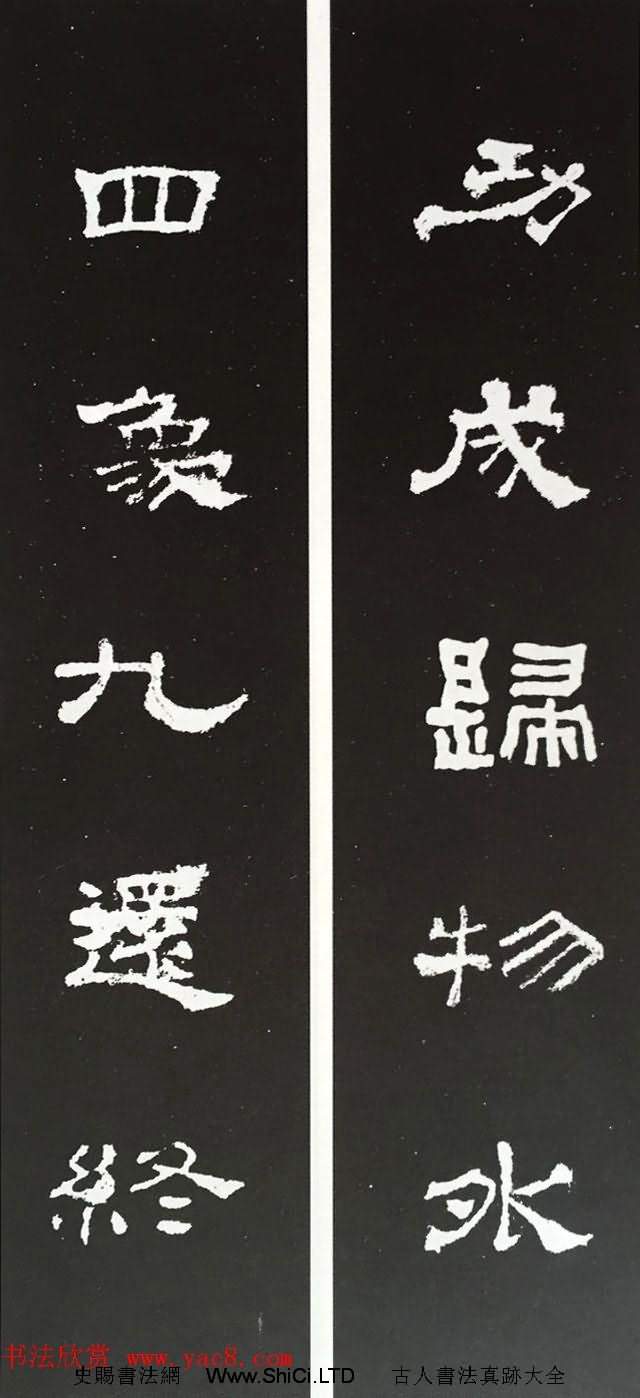 功成歸物外
四象九還終
书法欣赏 www.yac8.com
史賜書法網 Www.ShiCi.LTD 古人書法真跡大全